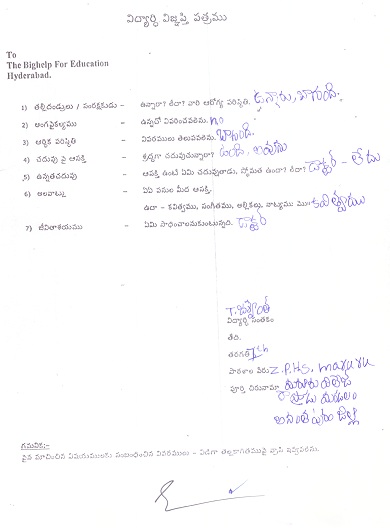 విద్యార్థి విజ్ఞప్తి పత్రము
To
The Bighelp For Education
Hyderabad.
1) తల్లీదండ్రులు / సంరక్షకుడు – ఉన్నారా? లేదా? వారి ఆరోగ్య పరిస్థితి. ఉన్నారు, బాగుంది.
2) అంగవైకల్యము – ఉన్నచో వివరించవలెను. no
3) ఆర్థిక పరిస్థితి – వివరములు తెలుపవలెను. బాగుంది.
4) చదువు పై ఆసక్తి – శ్రద్ధగా చదువుతున్నారా? ఉంది, అవును
5) ఉన్నతచదువు – ఆసక్తి ఉంటే ఏమి చదువుతాడు, స్తోమత ఉందా? లేదా? డాక్టర్ – లేదు
6) అలవాట్లు – ఏఏ పనుల మీద ఆసక్తి.
ఉదా – కవిత్వము, సంగీతము, ఆర్టికల్సు, నాట్యము మొ॥ కవిత్వము
7) జీవితాశయము – ఏమి సాధించాలనుకుంటున్నది. డాక్టర్
విద్యార్థి సంతకం
తేది.
తరగతి
పాఠశాల పేరు Z.P.H.S, maruru
పూర్తి చిరునామా మరూరు విలేజ్
రాప్తాడు మండలం
అనంతపురం జిల్లా
గమనిక:-
పైన సూచించిన విషయములకు సంబంధించిన వివరములు – విడిగా తెల్లకాగితముపై వ్రాసి ఇవ్వవలెను.